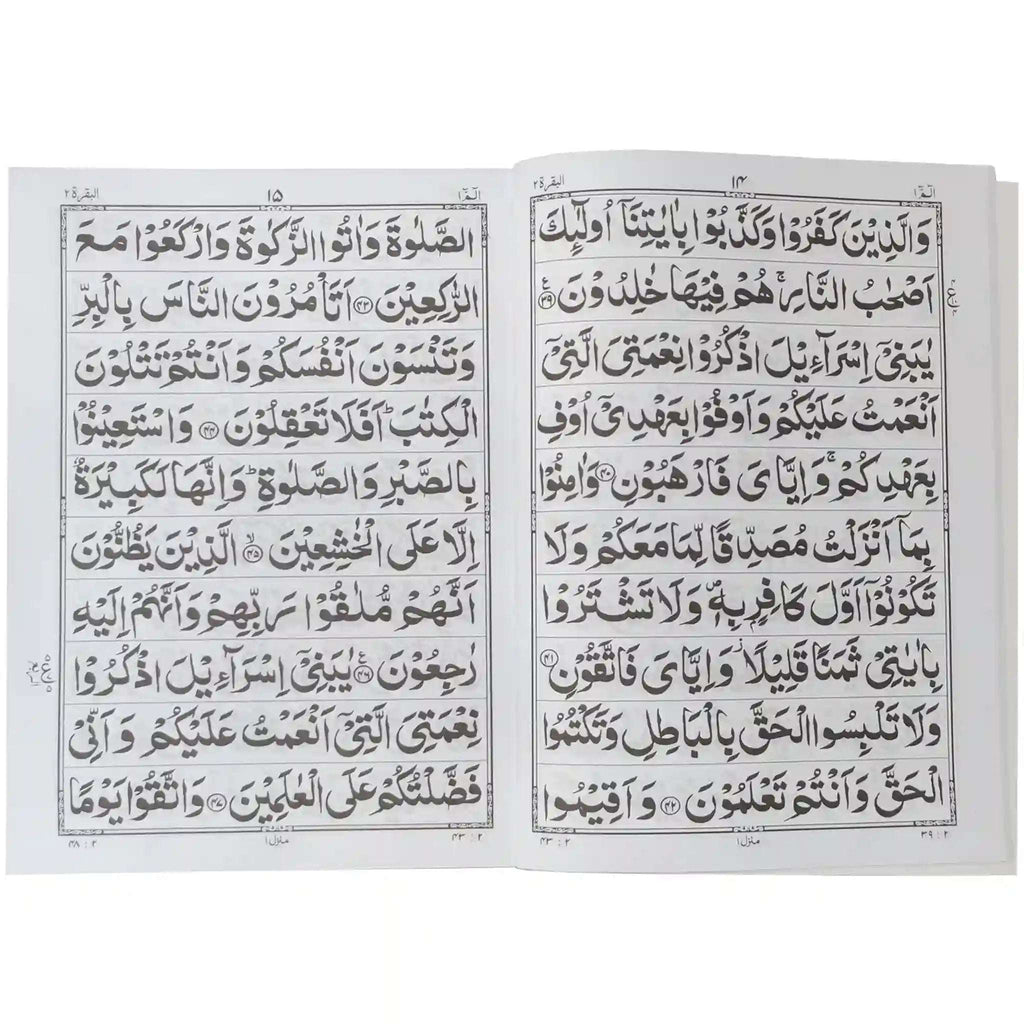 الٓمّٓ ۱
۱۴
البقرة ۲
وَالَّذِیْنَ كَفَرُوْا وَكَذَّبُوْا بِاٰیٰتِنَاۤ اُولٰٓىِٕكَ
اَصْحٰبُ النَّارِ ۚ هُمْ فِیْهَا خٰلِدُوْنَ ۳۹
یٰبَنِیْۤ اِسْرَآءِیْلَ اذْكُرُوْا نِعْمَتِیَ الَّتِیْۤ
اَنْعَمْتُ عَلَیْكُمْ وَاَوْفُوْا بِعَهْدِیْۤ اُوْفِ
بِعَهْدِكُمْ ۚ وَاِیَّایَ فَارْهَبُوْنِ ۴۰ وَاٰمِنُوْا
بِمَاۤ اَنْزَلْتُ مُصَدِّقًا لِّمَا مَعَكُمْ وَلَا
تَكُوْنُوْۤا اَوَّلَ كَافِرٍۭ بِهٖ ۪ وَلَا تَشْتَرُوْا
بِاٰیٰتِیْ ثَمَنًا قَلِیْلًا ؗ وَاِیَّایَ فَاتَّقُوْنِ ۴۱
وَلَا تَلْبِسُوا الْحَقَّ بِالْبَاطِلِ وَتَكْتُمُوا
الْحَقَّ وَاَنْتُمْ تَعْلَمُوْنَ ۴۲ وَاَقِیْمُوا
۲ : ۳۹
منزل ۱
۲ : ۴۳
الٓمّٓ ۱
۱۵
البقرة ۲
الصَّلٰوةَ وَاٰتُوا الزَّكٰوةَ وَارْكَعُوْا مَعَ
الرّٰكِعِیْنَ ۴۳ اَتَاْمُرُوْنَ النَّاسَ بِالْبِرِّ
وَتَنْسَوْنَ اَنْفُسَكُمْ وَاَنْتُمْ تَتْلُوْنَ
الْكِتٰبَ ؕ اَفَلَا تَعْقِلُوْنَ ۴۴ وَاسْتَعِیْنُوْا
بِالصَّبْرِ وَالصَّلٰوةِ ؕ وَاِنَّهَا لَكَبِیْرَةٌ
اِلَّا عَلَی الْخٰشِعِیْنَ ۙ ۴۵ الَّذِیْنَ یَظُنُّوْنَ
اَنَّهُمْ مُّلٰقُوْا رَبِّهِمْ وَاَنَّهُمْ اِلَیْهِ
رٰجِعُوْنَ ۴۶ یٰبَنِیْۤ اِسْرَآءِیْلَ اذْكُرُوْا
نِعْمَتِیَ الَّتِیْۤ اَنْعَمْتُ عَلَیْكُمْ وَاَنِّیْ
فَضَّلْتُكُمْ عَلَی الْعٰلَمِیْنَ ۴۷ وَاتَّقُوْا یَوْمًا
۲ : ۴۳
منزل ۱
۲ : ۴۸